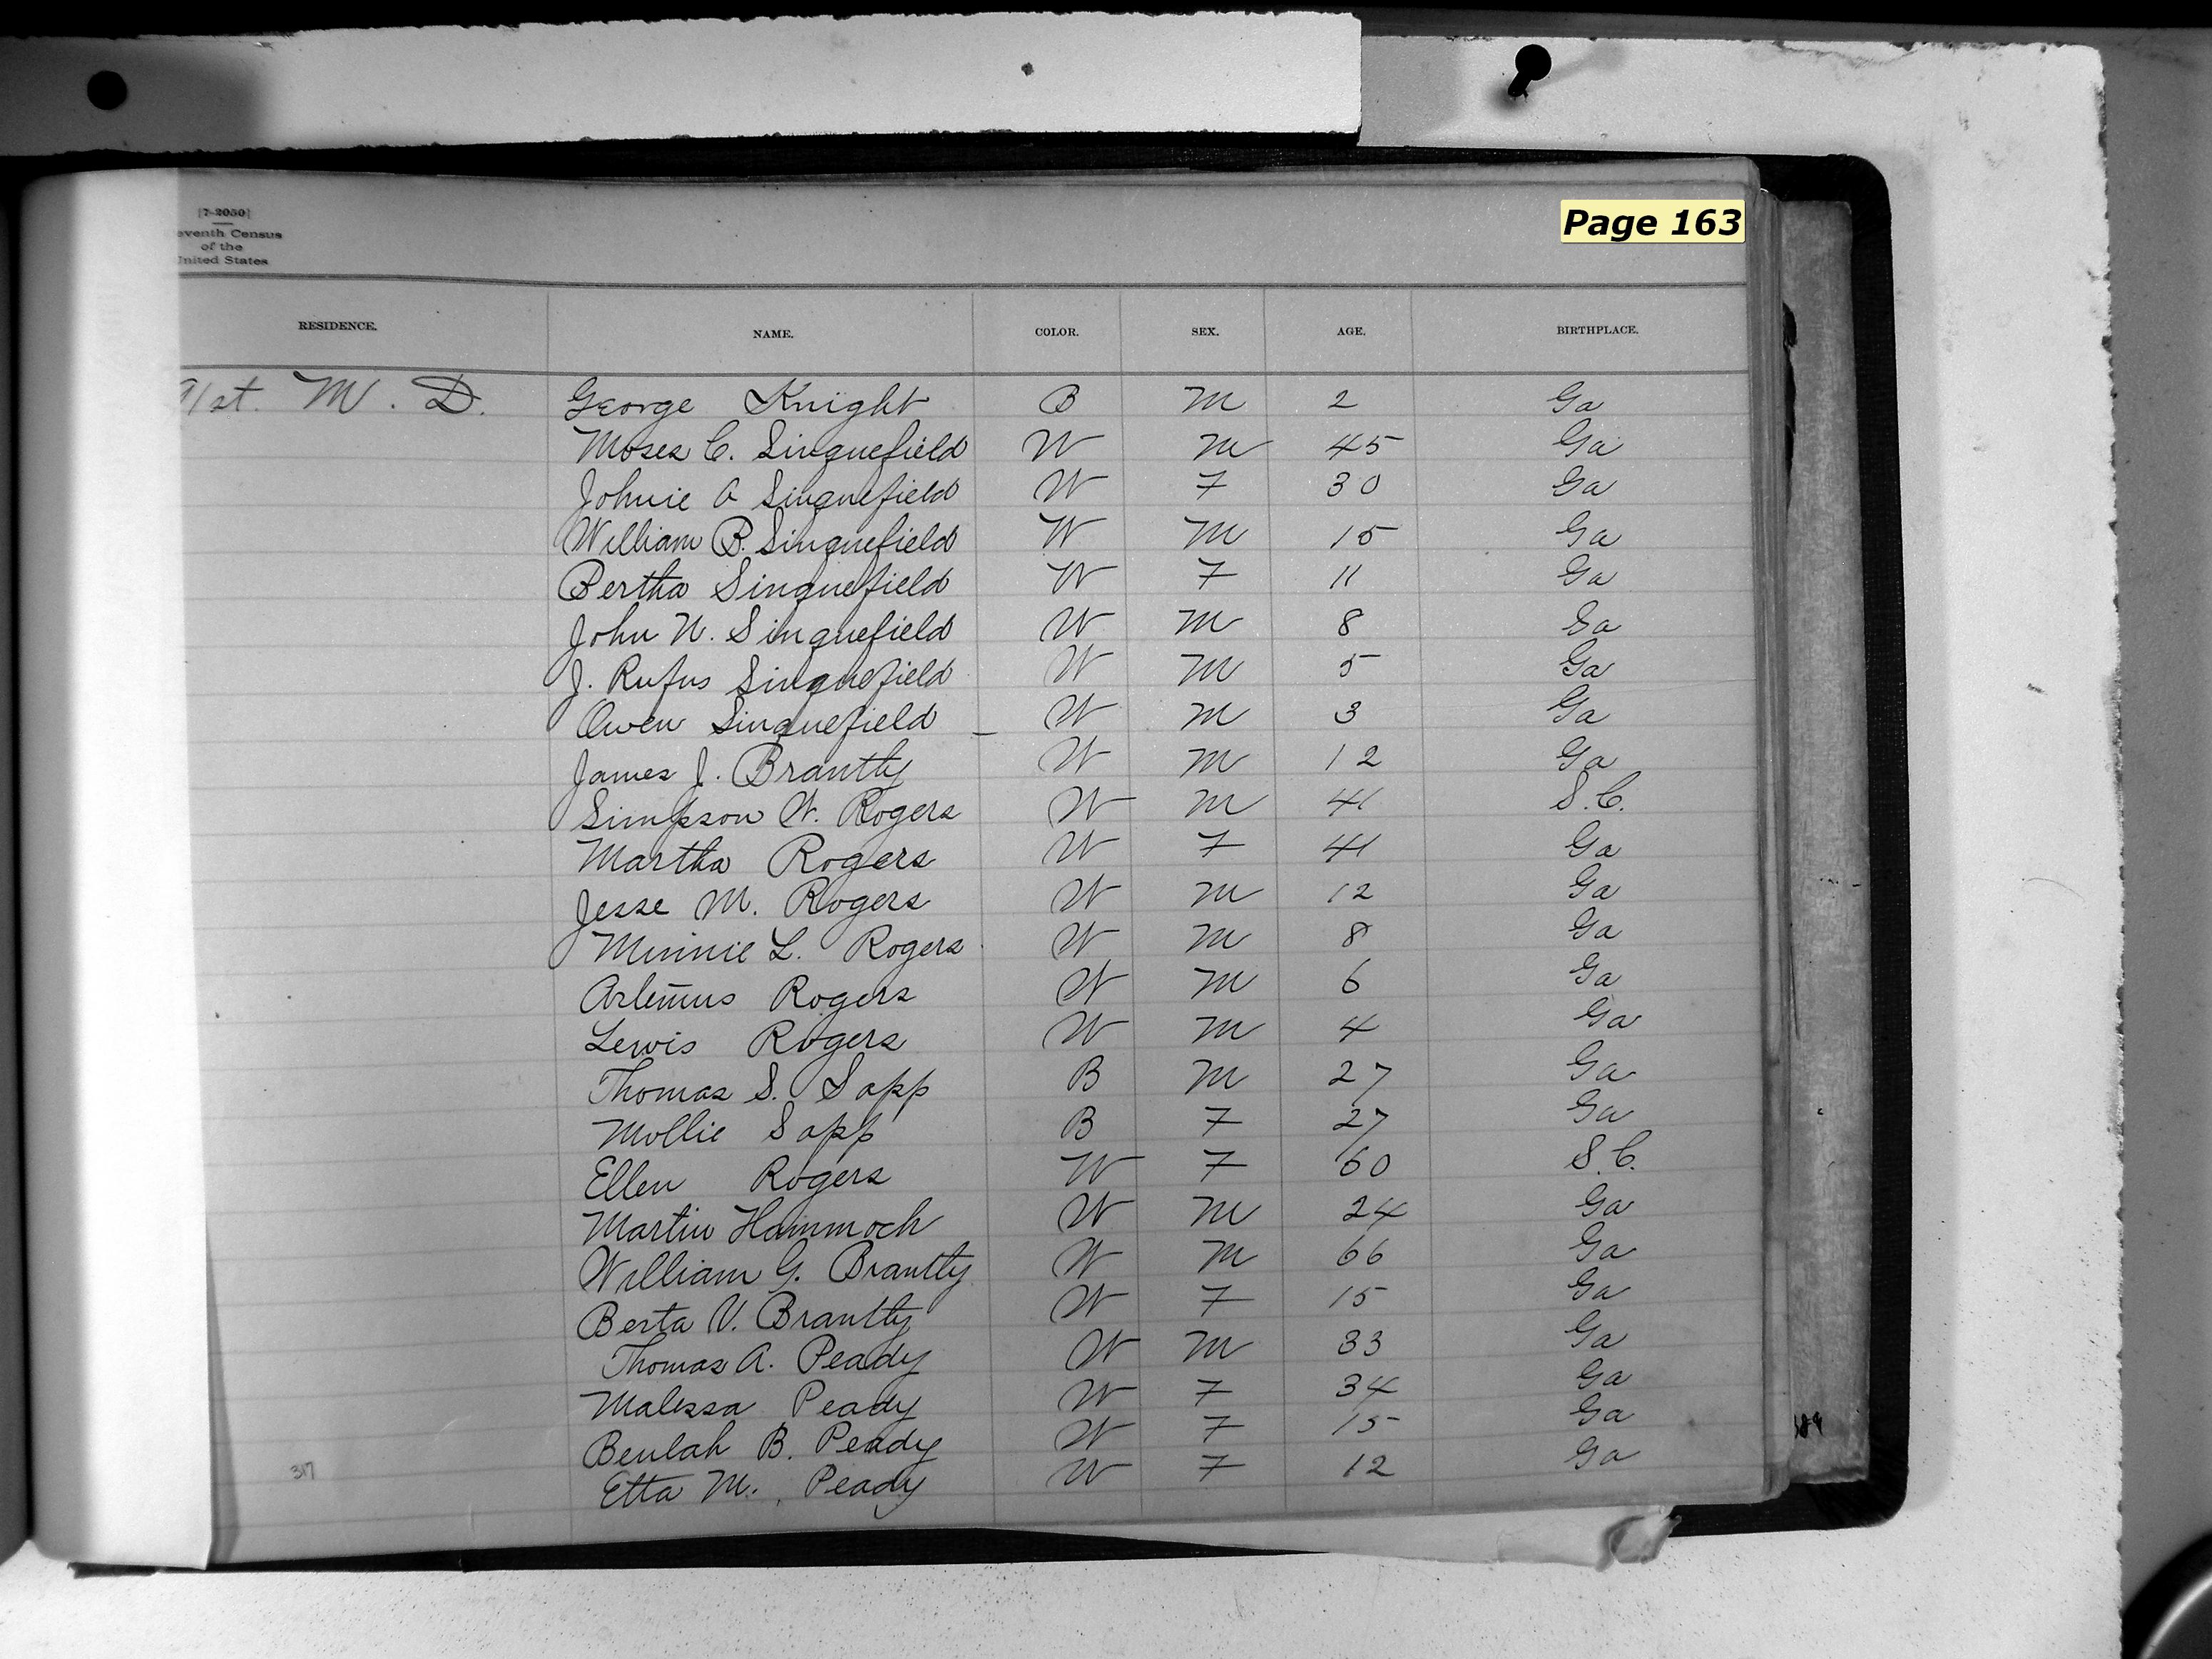 Page 163
[7-2050]
eventh Census
of the
United States
RESIDENCE. NAME. COLOR. SEX. AGE. BIRTHPLACE.
91st. M. D. George Knight B M 2 Ga
Moses C. Sinquefield W M 45 Ga
Johnie A Sinquefield W F 30 Ga
William B. Sinquefield W M 15 Ga
Bertha Sinquefield W F 11 Ga
John N. Sinquefield W M 8 Ga
J. Rufus Sinquefield W M 5 Ga
Owen Sinquefield W M 3 Ga
James J. Brantly W M 12 Ga
Simpson W. Rogers W M 41 S.C.
Martha Rogers W F 41 Ga
Jesse M. Rogers W M 12 Ga
Minnie L. Rogers W M 8 Ga
Artemus Rogers W M 6 Ga
Lewis Rogers W M 4 Ga
Thomas S. Sapp B M 27 Ga
Mollie Sapp B F 27 Ga
Ellen Rogers W F 60 S.C.
Martin Hammock W M 24 Ga
William G. Brantly W M 66 Ga
Berta V. Brantly W F 15 Ga
Thomas A. Peady W M 33 Ga
Malissa Peady W F 34 Ga
Beulah B. Peady W F 15 Ga
317 Etta M. Peady W F 12 Ga